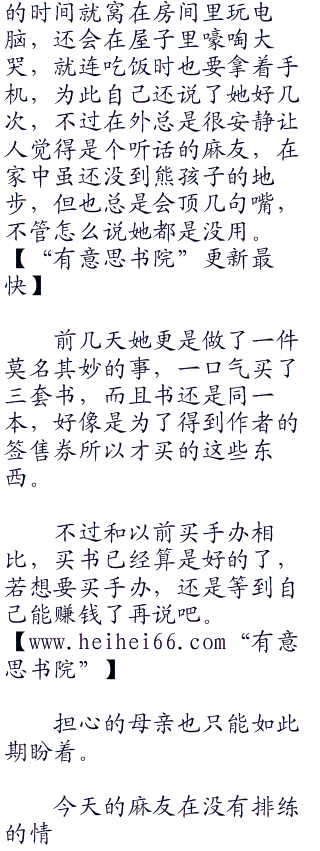 的时间就窝在房间里玩电
脑，还会在屋子里嚎啕大
哭，就连吃饭时也要拿着手
机，为此自己还说了她好几
次，不过在外总是很安静让
人觉得是个听话的麻友，在
家中虽还没到熊孩子的地
步，但也总是会顶几句嘴，
不管怎么说她都是没用。
【“有意思书院”更新最
快】
前几天她更是做了一件
莫名其妙的事，一口气买了
三套书，而且书还是同一
本，好像是为了得到作者的
签售券所以才买的这些东
西。
不过和以前买手办相
比，买书已经算是好的了，
若想要买手办，还是等到自
己能赚钱了再说吧。
【www.heihei66.com“有意
思书院”】
担心的母亲也只能如此
期盼着。
今天的麻友在没有排练
的情